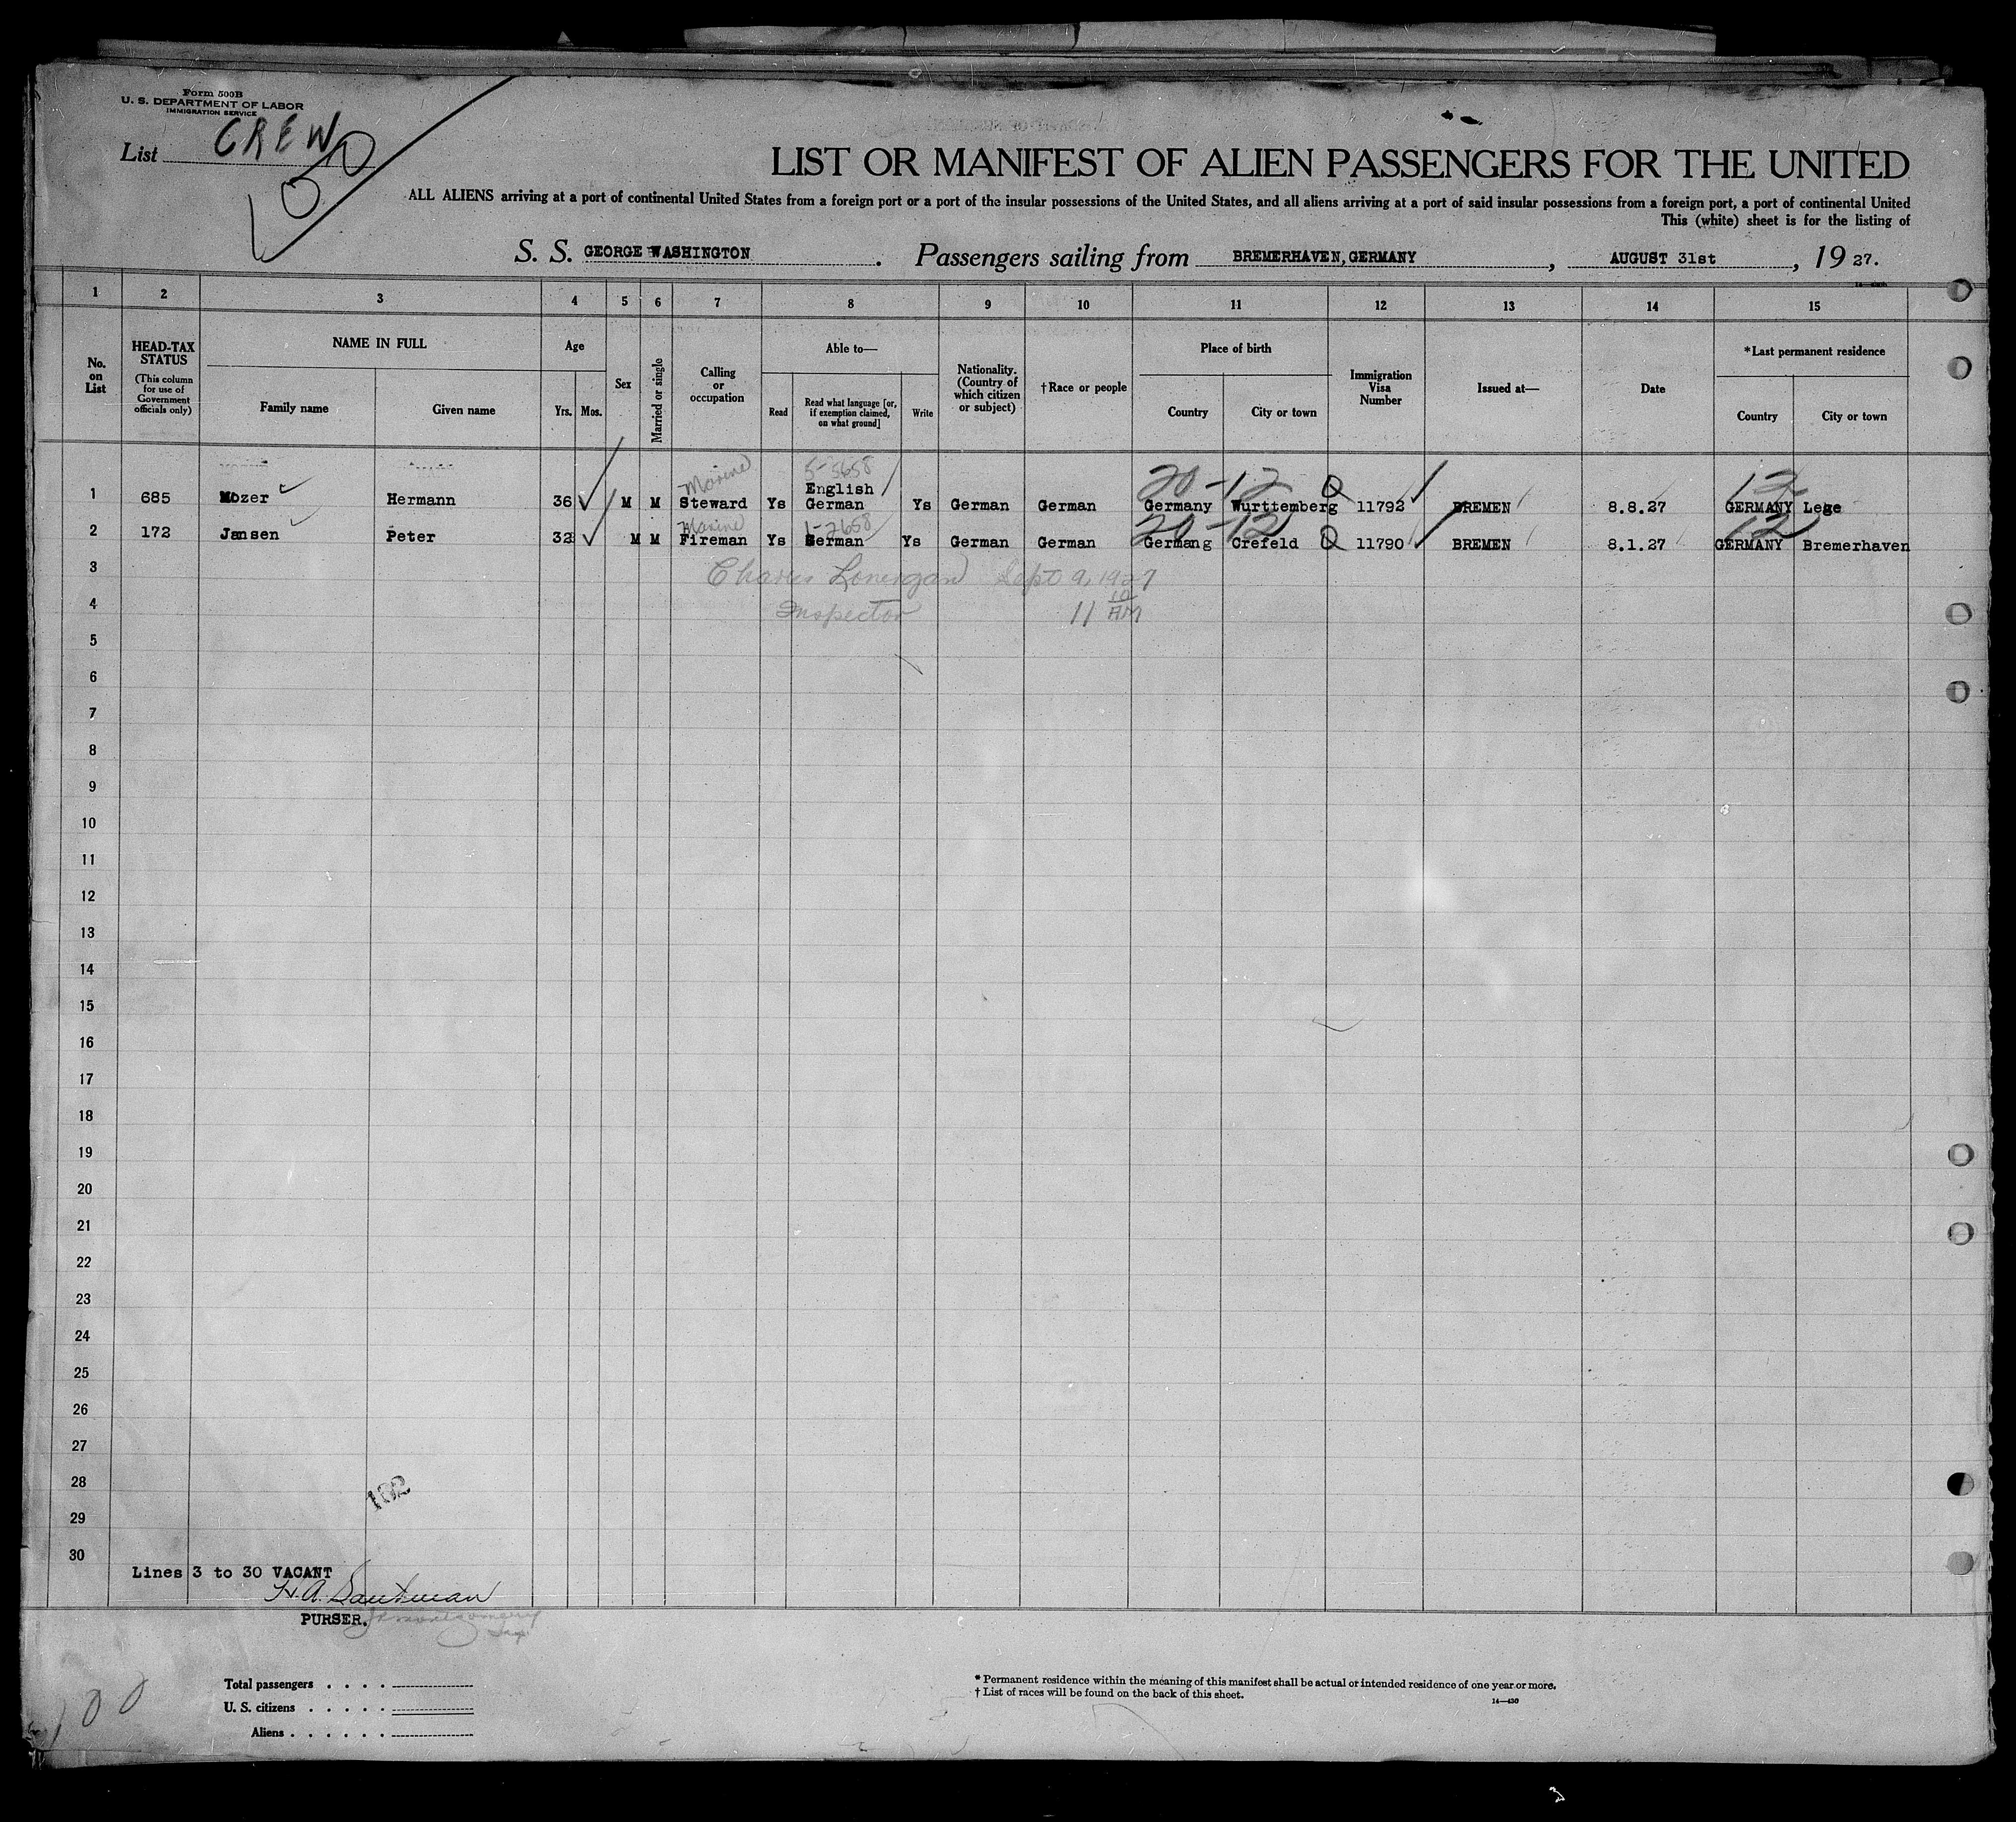 Form 500B
U. S. DEPARTMENT OF LABOR
IMMIGRATION SERVICE
List CREW
100
LIST OR MANIFEST OF ALIEN PASSENGERS FOR THE UNITED
ALL ALIENS arriving at a port of continental United States from a foreign port or a port of the insular possessions of the United States, and all aliens arriving at a port of said insular possessions from a foreign port, a port of continental United
This (white) sheet is for the listing of
S. S. GEORGE WASHINGTON . Passengers sailing from BREMERHAVEN, GERMANY , AUGUST 31st , 19 27.
1 2 3 4 5 6 7 8 9 10 11 12 13 14 15
No. on List
HEAD-TAX STATUS
(This column for use of Government officials only)
NAME IN FULL
Family name
Given name
Age
Yrs. Mos.
Sex
Married or single
Calling or occupation
Able to—
Read
Read what language [or, if exemption claimed, on what ground]
Write
Nationality. (Country of which citizen or subject)
†Race or people
Place of birth
Country
City or town
Immigration Visa Number
Issued at—
Date
*Last permanent residence
Country
City or town
Marine 5-3658 20-12 Q 12
English
1 685 Mozer Hermann 36 M M Steward Ys German Ys German German Germany Wurttemberg 11792 BREMEN 8.8.27 GERMANY Lege
Marine 1-2658 20-12 Q 12
2 172 Jansen Peter 32 M M Fireman Ys German Ys German German Germang Crefeld 11790 BREMEN 8.1.27 GERMANY Bremerhaven
3 Charles Lonergan Sept 9, 1927
4 Inspector 11 10 AM
5
6
7
8
9
10
11
12
13
14
15
16
17
18
19
20
21
22
23
24
25
26
27
28
182
29
30
Lines 3 to 30 VACANT
H. A. Sautman
PURSER.
Total passengers
U. S. citizens
Aliens
100
* Permanent residence within the meaning of this manifest shall be actual or intended residence of one year or more.
† List of races will be found on the back of this sheet.
14—430